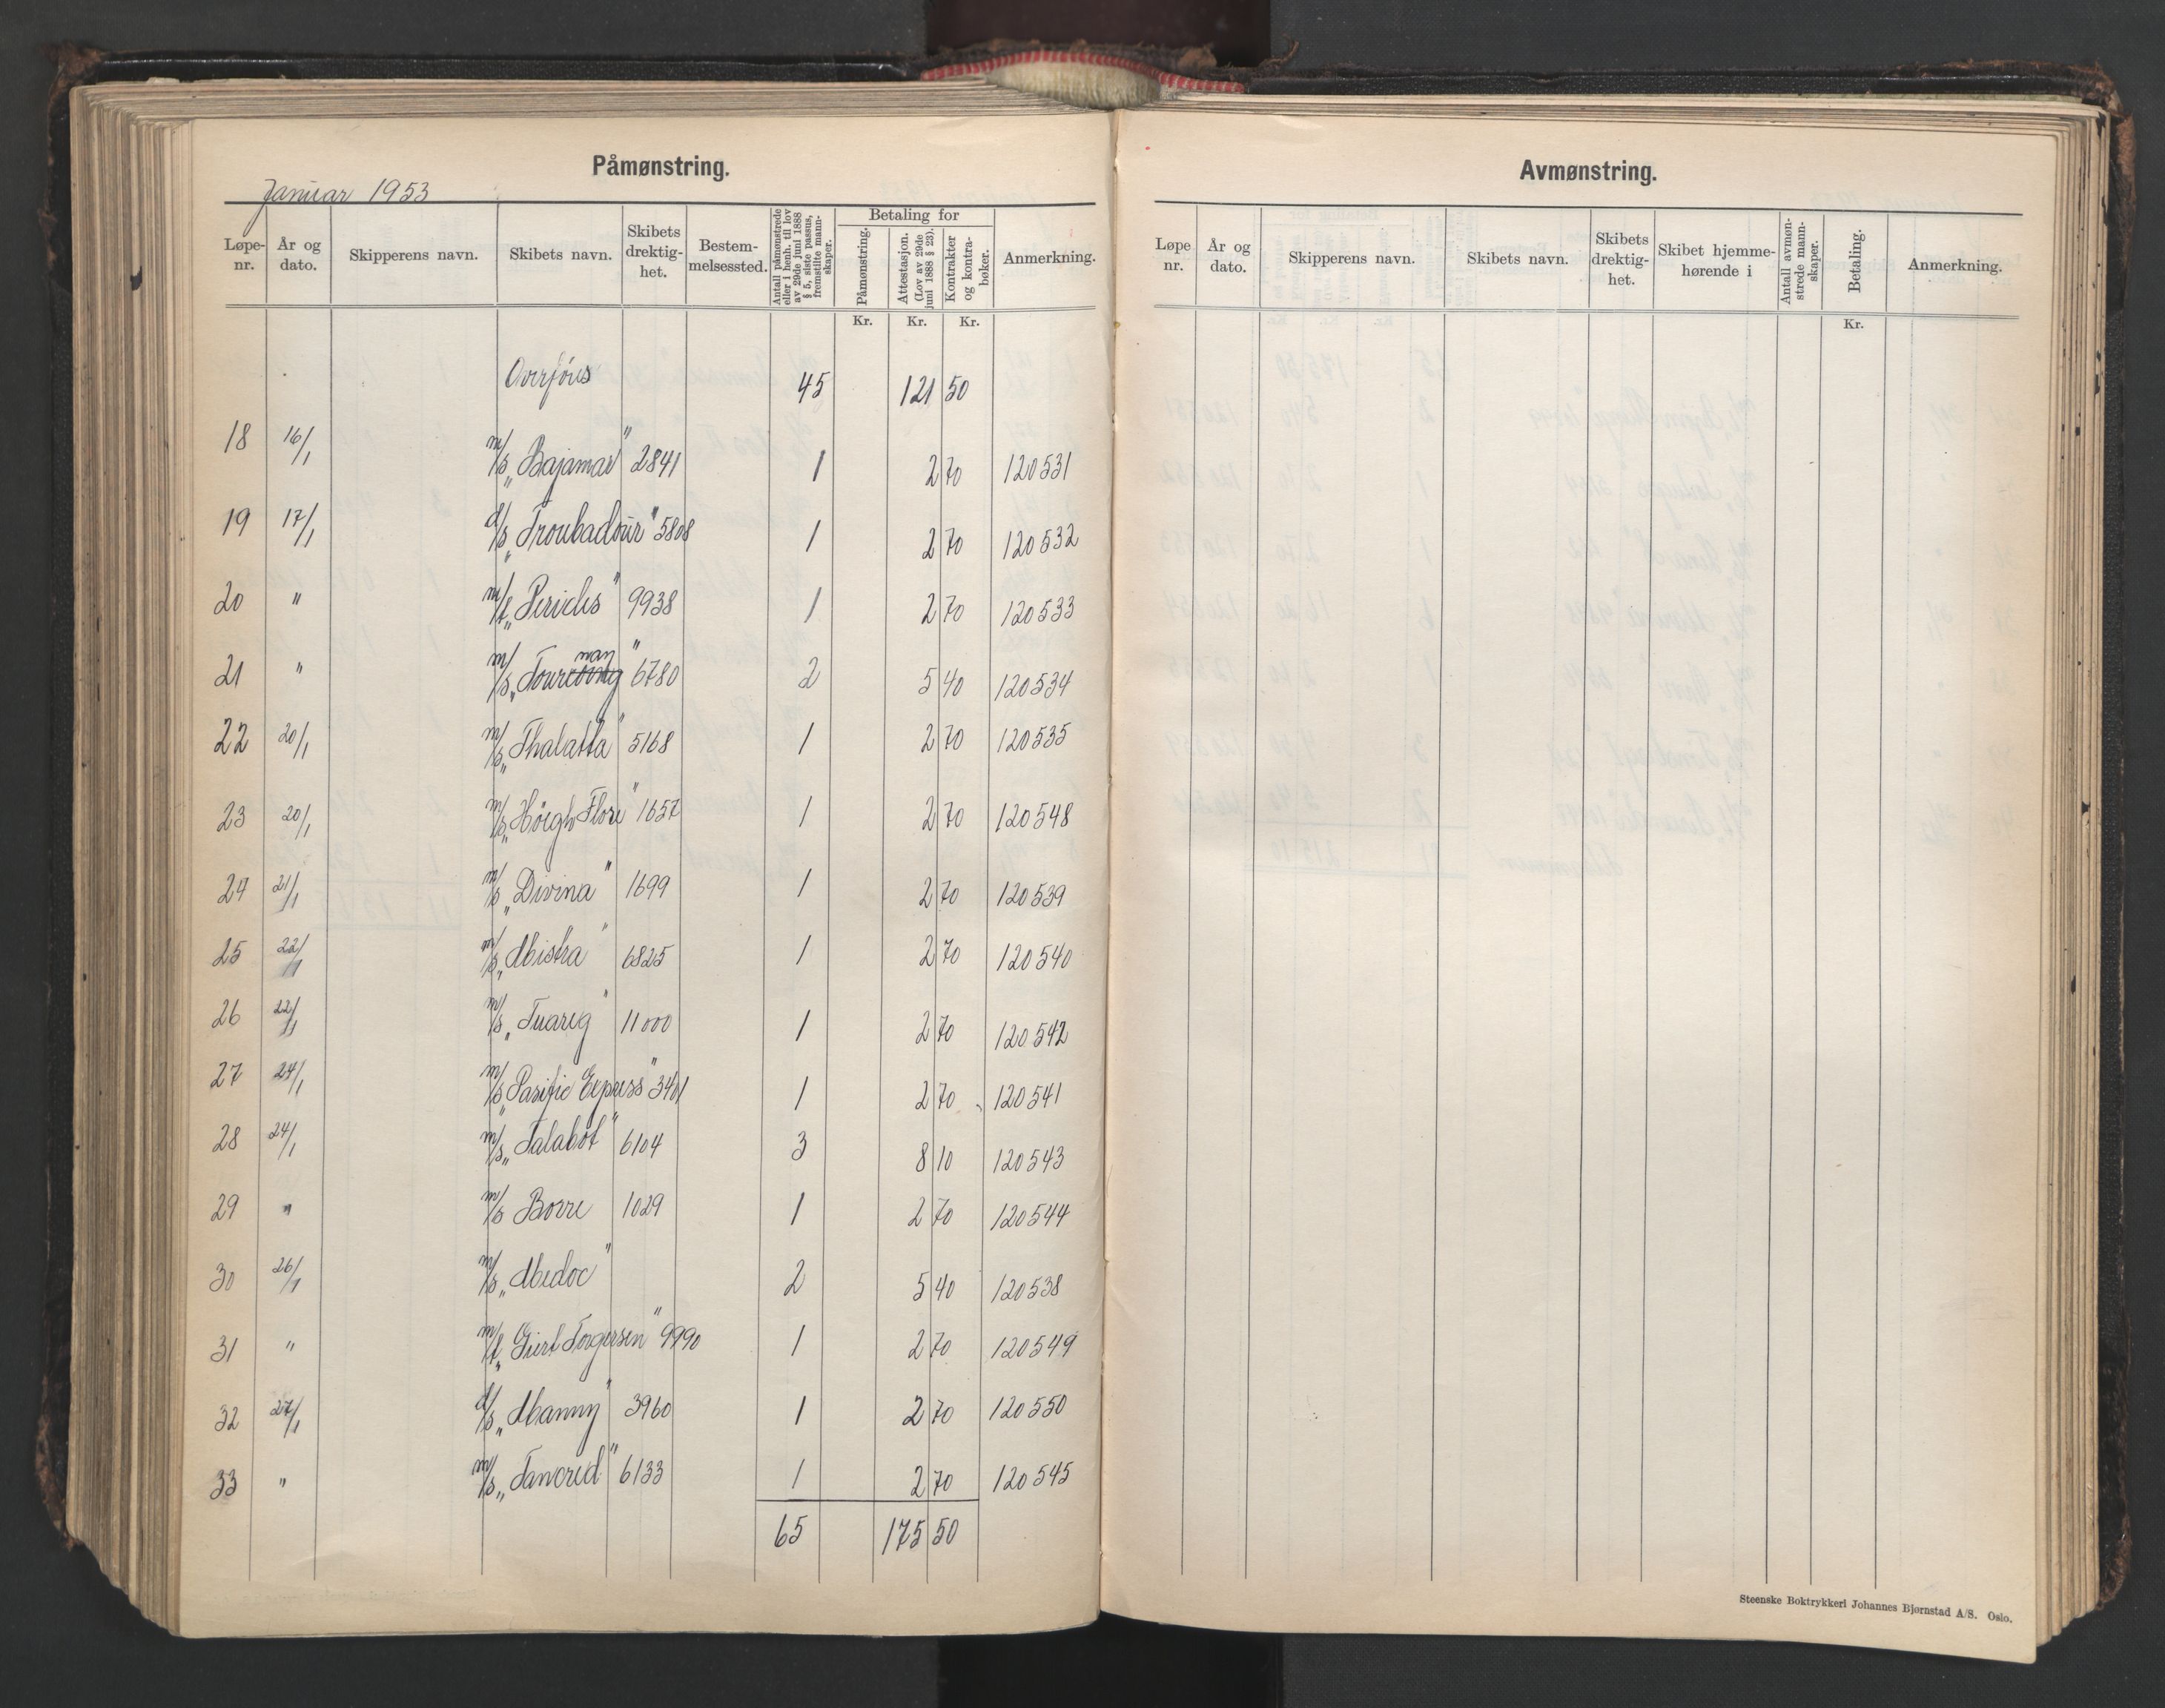 Påmønstring.
Januar 1953
Løpe-nr. År og dato. Skipperens navn. Skibets navn. Skibets drektig-het. Bestem-melsessted. Antall påmønstrede eller i henh. til lov av 29de juni 1888 § 5, siste passus, fremstilte mann-skaper. Betaling for Påmønstring. Attestasjon. (Lov av 29de juni 1888 § 23). Kontrakter og kontra-bøker. Anmerkning.
Kr. Kr. Kr.
Overføres 45 121 50
18 16/1 m/s „Bajamar" 2841 1 2 70 120531
19 17/1 d/s „Troubadour" 5808 1 2 70 120532
20 " m/t „Pericles" 9938 1 2 70 120533
21 " m/s „Tourcoing man" 6780 2 5 40 120534
22 20/1 m/s „Thalatta" 5168 1 2 70 120535
23 20/1 m/s „Höegh Flore" 1657 1 2 70 120548
24 21/1 m/s „Divina" 1699 1 2 70 120539
25 22/1 m/s „Mistra" 6825 1 2 70 120540
26 22/1 m/s „Tuareg" 11000 1 2 70 120542
27 24/1 m/s „Pasific Express" 3401 1 2 70 120541
28 24/1 m/s „Talabot" 6104 3 8 10 120543
29 " m/s Borre 1029 1 2 70 120544
30 26/1 m/s „Medoc" 2 5 40 120538
31 " m/t „Giert Torgersen" 9990 1 2 70 120549
32 27/1 d/s „Manny" 3960 1 2 70 120550
33 " m/s „Tancred" 6133 1 2 70 120545
65 175 50
Avmønstring.
Løpe nr. År og dato. Skipperens navn. Skibets navn. Skibets drektig-het. Skibet hjemme-hørende i Antall avmøn-strede mann-skaper. Betaling. Anmerkning.
Kr.
Steenske Boktrykkeri Johannes Bjørnstad A/S. Oslo.